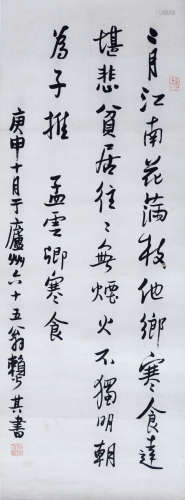 二月江南花满枝他鄉寒食遠
堪悲貧居往〻無煙火不獨明朝
為子推 孟雲卿寒食
庚申十月于廬州六十五翁賴少其書